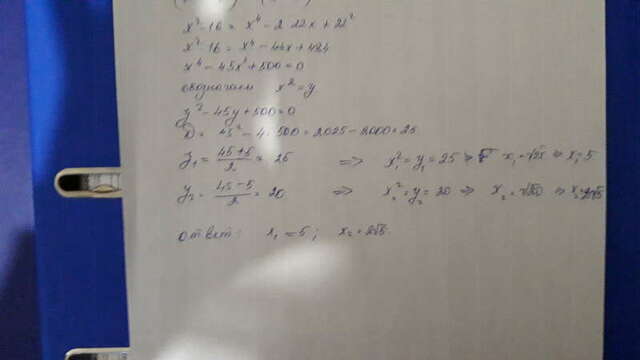 x² - 16 = x⁴ - 2·22x + 22²
x² - 16 = x⁴ - 44x + 484
x⁴ - 45x² + 500 = 0
x² = y
y² - 45y + 500 = 0
D = 45² - 4·500 = 2025 - 2000 = 25
y₁ = (45+5)/2 = 25 => x₁² = y₁ = 25 => x₁ = √25 => x₁ = 5
y₂ = (45-5)/2 = 20 => x₂² = y₂ = 20 => x₂ = √20
ответ: x₁ = 5; x₂ = 2√5